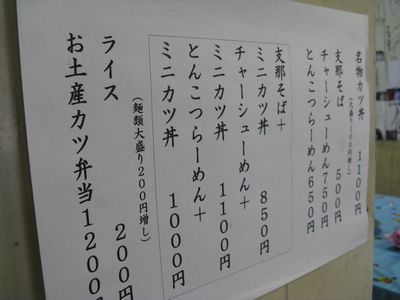 名物カツ丼　１１００円
（大盛り２００円増し）
支那そば　５００円
チャーシューめん７５０円
とんこつらーめん６５０円
支那そば＋
ミニカツ丼　８５０円
チャーシューめん＋
ミニカツ丼　１１００円
とんこつらーめん＋
ミニカツ丼　１０００円
（麺類大盛り２００円増し）
ライス　２００円
お土産カツ弁当１２００